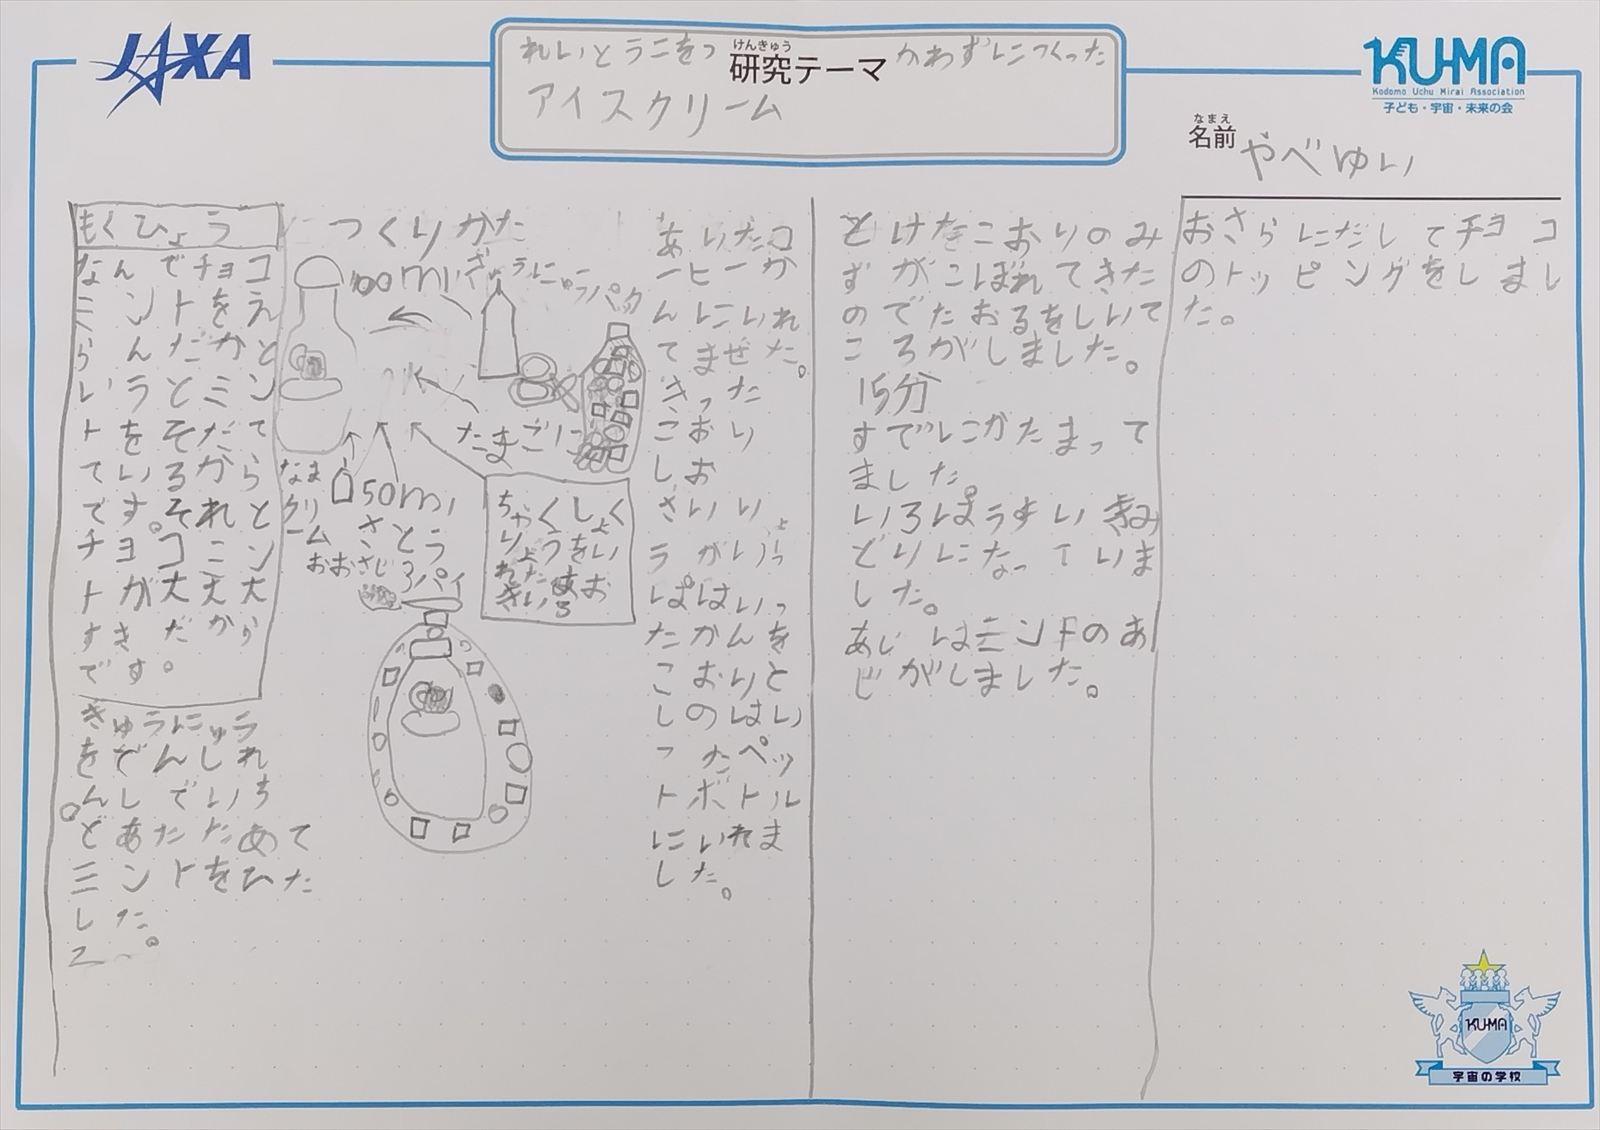 JAXA
れいとうこをつかわずにつくった
けんきゅう
研究テーマ
アイスクリーム
KU-MA
Kodomo Uchu Mirai Association
子ども・宇宙・未来の会
なまえ
名前
やべゆい
もくひょう
なんでチョコ
ミントをえ
らんだかと
いうとミン
トをそだて
ているから
です。それと
チョコミン
トが大大大
すきだから
です。
ぎゅうにゅう
をでんしれ
んじでいち
ど あたためて
ミントをひた
した。
つくりかた
100mlぎゅうにゅう
たまご
なま
クリーム
50ml
さとう
おおさじ
3パイ
ちゃくしょく
りょうをい
れたきいろ
あいたコ
ーヒーか
んにいれ
てまぜた。
こおり
しお
ぱはいっ
たかんを
こおりと
しのはい
ったペッ
トボトル
にいれま
した。
とけたこおりのみ
ずがこぼれてきた
のでたおるをしいて
ころがしました。
15分
すでにかたまって
ました。
いろはうすいきみ
どりになっていま
した。
あじはミントのあ
じがしました。
おさらにだしてチョコ
のトッピングをしまし
た。
KU-MA
宇宙の学校